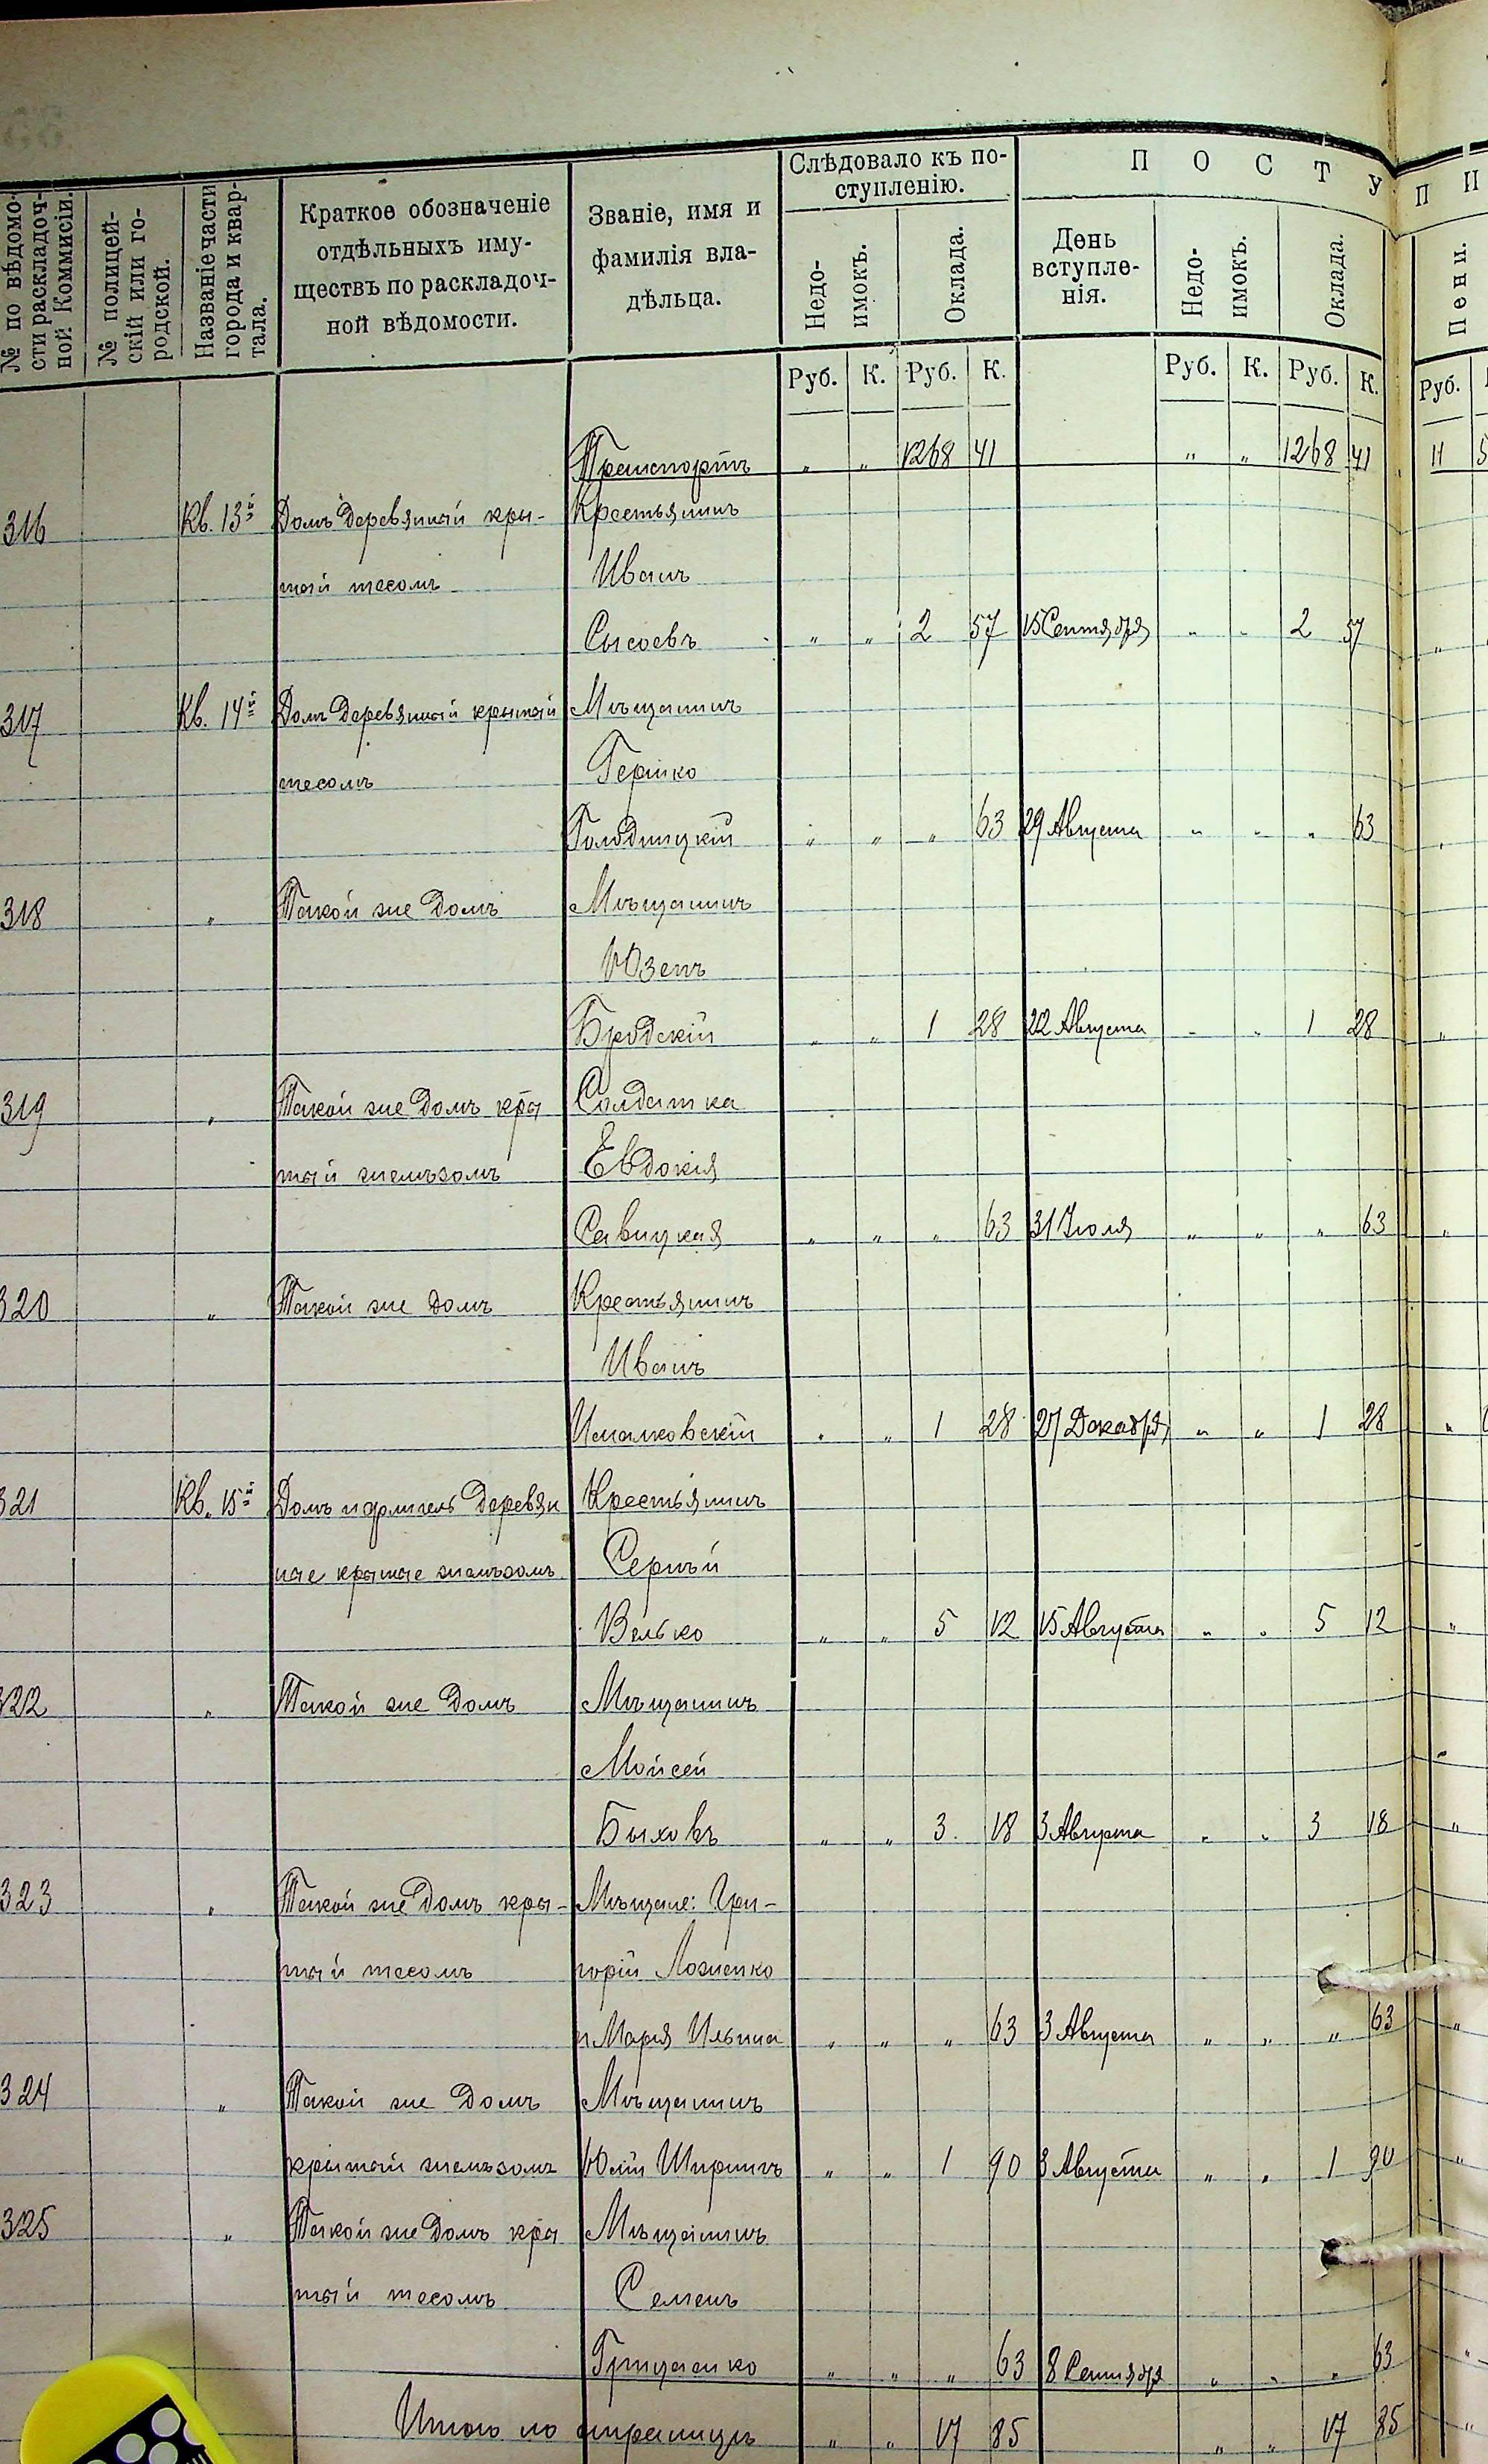 № по вѣдомо-
сти раскладоч-
ной Коммисіи.
№ полицей-
скій или го-
родской.
Названіе части
города и квар-
тала.
Краткое обозначеніе
отдѣльныхъ иму-
ществъ по раскладоч-
ной вѣдомости.
Званіе, имя и
фамилія вла-
дѣльца.
Слѣдовало къ по-
ступленію.
Недо-
имокъ.
Оклада.
П О С Т У П И
День
вступле-
нія.
Недо-
имокъ.
Оклада.
Пени.
Руб. К. Руб. К. Руб. К. Руб. К. Руб.
Транспортъ " " 1268 41 " " 1268 41 11 5
316 Кв. 13й Домъ деревянный кры- Крестьянинъ
тый тесомъ Иванъ
Сысоевъ " " 2 57 15 Сентября " " 2 57 "
317 Кв. 14й Домъ деревянный крытый Мѣщанинъ
тесомъ Гершко
Голодницкій " " " 63 29 Августа " " " 63
318 " Такой же домъ Мѣщанинъ
Юзепъ
Бродскій " " 1 28 22 Августа " " 1 28 "
319 " Такой же домъ кры Солдатка
тый желѣзомъ Евдокія
Савицкая " " " 63 31 Іюля " " " 63 "
320 " Такой же домъ Крестьянинъ
Иванъ
" " 1 28 27 Декабря " " 1 28 "
321 Кв. 15й Домъ и флигель деревян Крестьянинъ
ные крытые желѣзомъ Сергѣй
Велько " " 5 12 15 Августа " " 5 12 "
322 " Такой же домъ Мѣщанинъ
Мойсей
Быховъ " " 3 18 3 Августа " " 3 18 "
323 " Такой же домъ кры- Мѣщане: Гри-
тый тесомъ горій Лозенко
и Марія Ильина " " " 63 3 Августа " " " 63 "
324 " Такой же домъ Мѣщанинъ
крытый желѣзомъ Юлій Ширинъ " " 1 90 3 Августа " " 1 90 "
325 " Такой же домъ кры Мѣщанинъ
тый тесомъ Семенъ
Грищенко " " " 63 8 Сентября " " " 63 "
Итого по страницѣ " " 17 85 " " 17 85 "